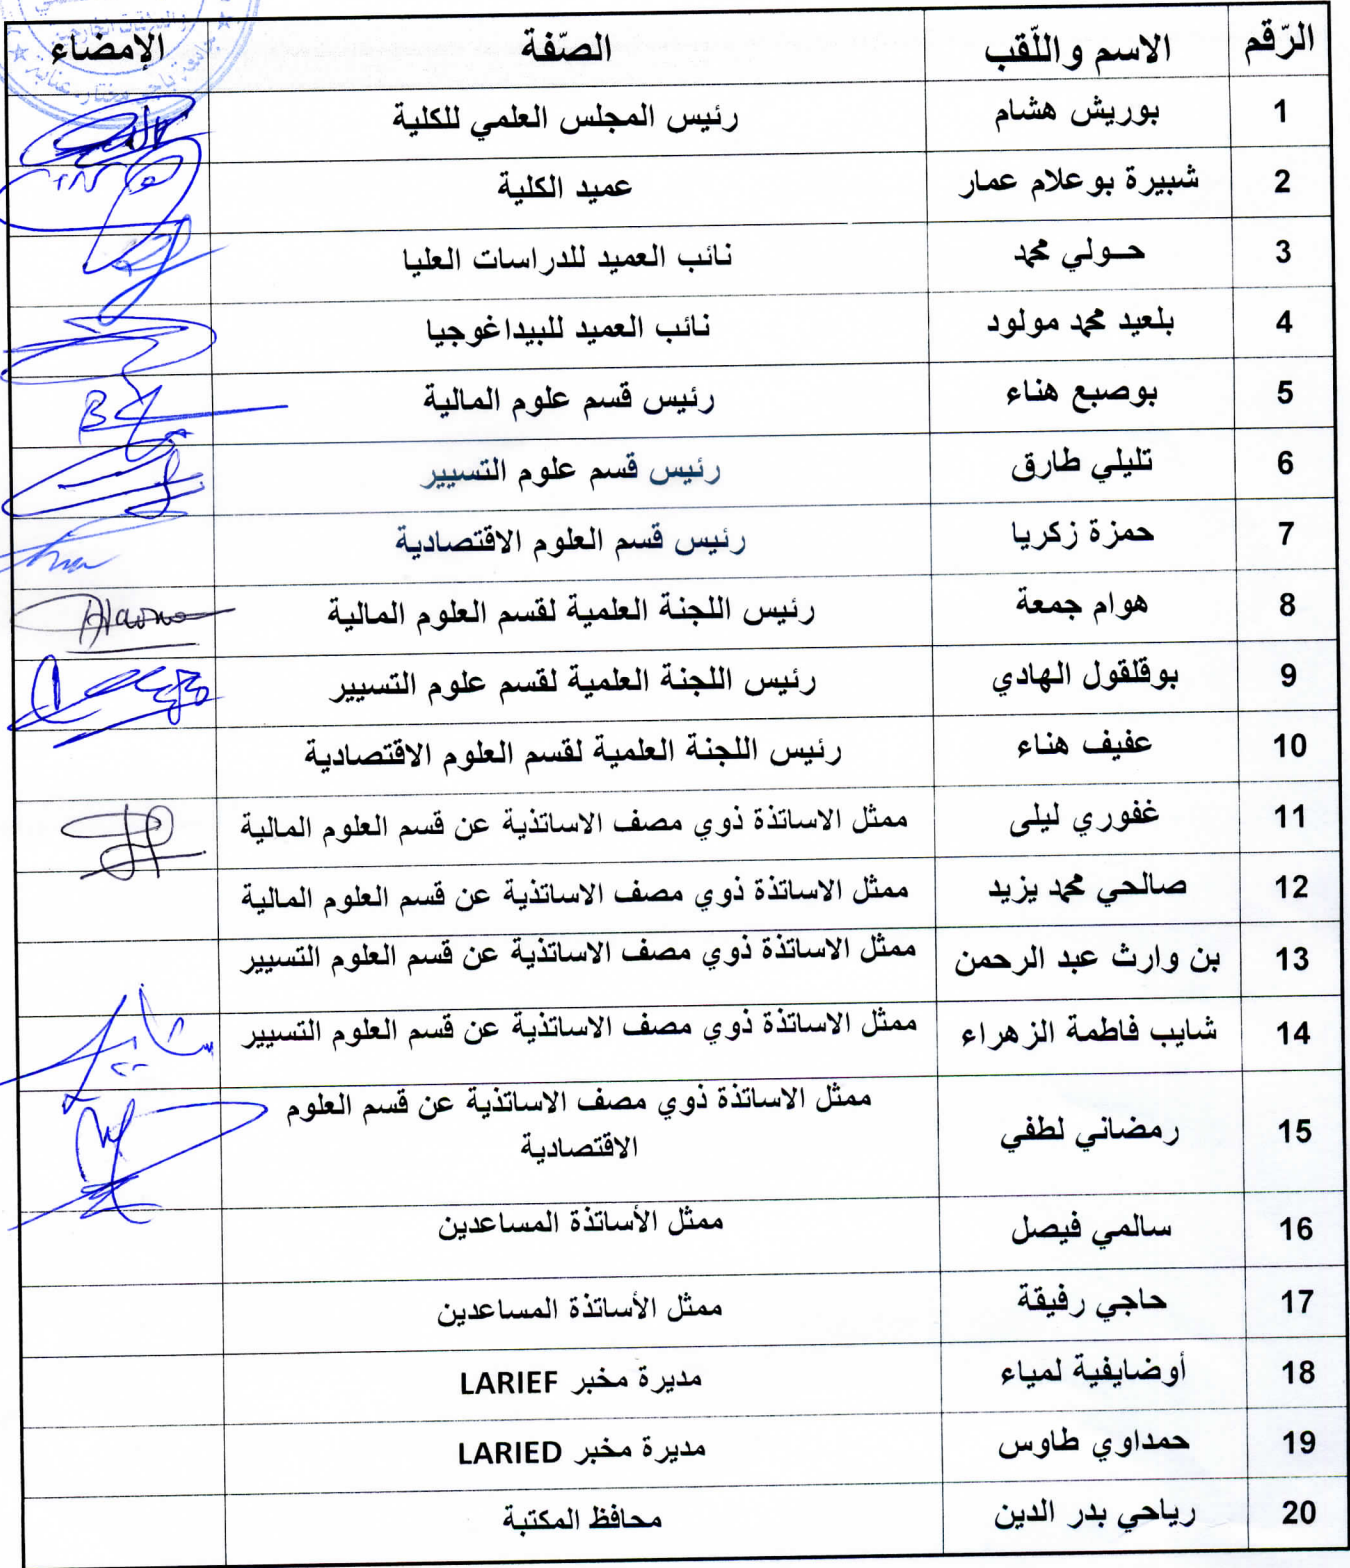 الرّقم الاسم واللّقب الصّفة الإمضاء
1 بوريش هشام رئيس المجلس العلمي للكلية
2 شبيرة بوعلام عمار عميد الكلية
3 حولي محمد نائب العميد للدراسات العليا
4 بلعيد محمد مولود نائب العميد للبيداغوجيا
5 بوصبع هناء رئيس قسم علوم المالية
6 تليلي طارق رئيس قسم علوم التسيير
7 حمزة زكريا رئيس قسم العلوم الاقتصادية
8 هوام جمعة رئيس اللجنة العلمية لقسم العلوم المالية
9 بوقلقول الهادي رئيس اللجنة العلمية لقسم علوم التسيير
10 عفيف هناء رئيس اللجنة العلمية لقسم العلوم الاقتصادية
11 غفوري ليلى ممثل الاساتذة ذوي مصف الاساتذية عن قسم العلوم المالية
12 صالحي محمد يزيد ممثل الاساتذة ذوي مصف الاساتذية عن قسم العلوم المالية
13 بن وارث عبد الرحمن ممثل الاساتذة ذوي مصف الاساتذية عن قسم العلوم التسيير
14 شايب فاطمة الزهراء ممثل الاساتذة ذوي مصف الاساتذية عن قسم العلوم التسيير
15 رمضاني لطفي ممثل الاساتذة ذوي مصف الاساتذية عن قسم العلوم
الاقتصادية
16 سالمي فيصل ممثل الأساتذة المساعدين
17 حاجي رفيقة ممثل الأساتذة المساعدين
18 أوضايفية لمياء مديرة مخبر LARIEF
19 حمداوي طاوس مديرة مخبر LARIED
20 رياحي بدر الدين محافظ المكتبة